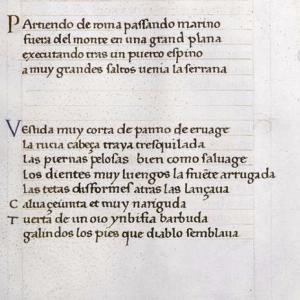 Partiendo de roma passando marino
fuera del monte en una grand plana
executando tras un puerco espino
a muy grandes saltos uenia la serrana
Vestida muy corta de panno de eruage
la rucia cabeça traya tresquilada
las piernas pelosas bien como saluage
los dientes muy luengos la fruẽte arrugada
las tetas disformes atras las lançaua
C alua çeiunta et muy nariguda
T uerta de un oio ynbifia barbuda
galindos los pies que diablo semblaua